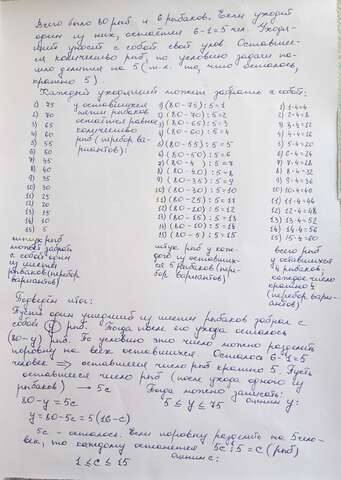 Всего было 80 рыб и 6 рыбаков. Если уходит
один из них, остаётся 6-1=5 чел. Уходя-
щий уносит с собой свой улов. Оставшее-
ся количество рыб, по условию задачи на-
цело делится на 5 (т.к. то, что осталось,
кратно 5).
Каждый уходящий может забрать с собой:
1) 75
2) 70
3) 65
4) 60
5) 55
6) 50
7) 45
8) 40
9) 35
10) 30
11) 25
12) 20
13) 15
14) 10
15) 5
штук рыб
может забрать
с собой один
из шести
рыбаков (перебор
вариантов)
у оставшихся
пяти рыбаков
остаётся равное
количество
рыб (перебор ва-
риантов):
1) (80-75):5=1
2) (80-70):5=2
3) (80-65):5=3
4) (80-60):5=4
5) (80-55):5=5
6) (80-50):5=6
7) (80-45):5=7
8) (80-40):5=8
9) (80-35):5=9
10) (80-30):5=10
11) (80-25):5=11
12) (80-20):5=12
13) (80-15):5=13
14) (80-10):5=14
15) (80-5):5=15
штук рыб у каж-
дого из оставших-
ся 5 рыбаков (пере-
бор вариантов)
1) 1·4=4
2) 2·4=8
3) 3·4=12
4) 4·4=16
5) 5·4=20
6) 6·4=24
7) 7·4=28
8) 8·4=32
9) 9·4=36
10) 10·4=40
11) 11·4=44
12) 12·4=48
13) 13·4=52
14) 14·4=56
15) 15·4=60
всего рыб
у оставшихся
4 рыбаков;
каждое число
кратно 4
(перебор вари-
антов)
Подведём итог:
Пусть один ушедший из шести рыбаков забрал с
собой y рыб. Тогда после его ухода осталось
(80-y) рыб. По условию это число можно разделить
поровну на всех оставшихся. Осталось 6-1=5
человек ⟹ оставшееся число рыб кратно 5. Пусть
оставшееся число рыб (после ухода одного из
рыбаков) → 5c Тогда можно записать:
80-y=5c 5≤y≤75 оценим y:
y=80-5c=5(16-c)
5c - осталось. Если поровну разделить на 5 чело-
век, то каждому останется 5c:5=c (рыб)
оценим c:
1≤c≤15